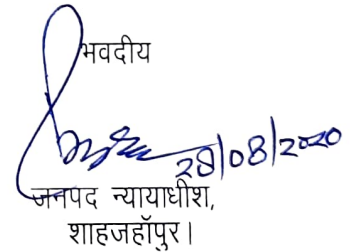 भवदीय
28/08/2020
जनपद न्यायाधीश,
शाहजहॉपुर।